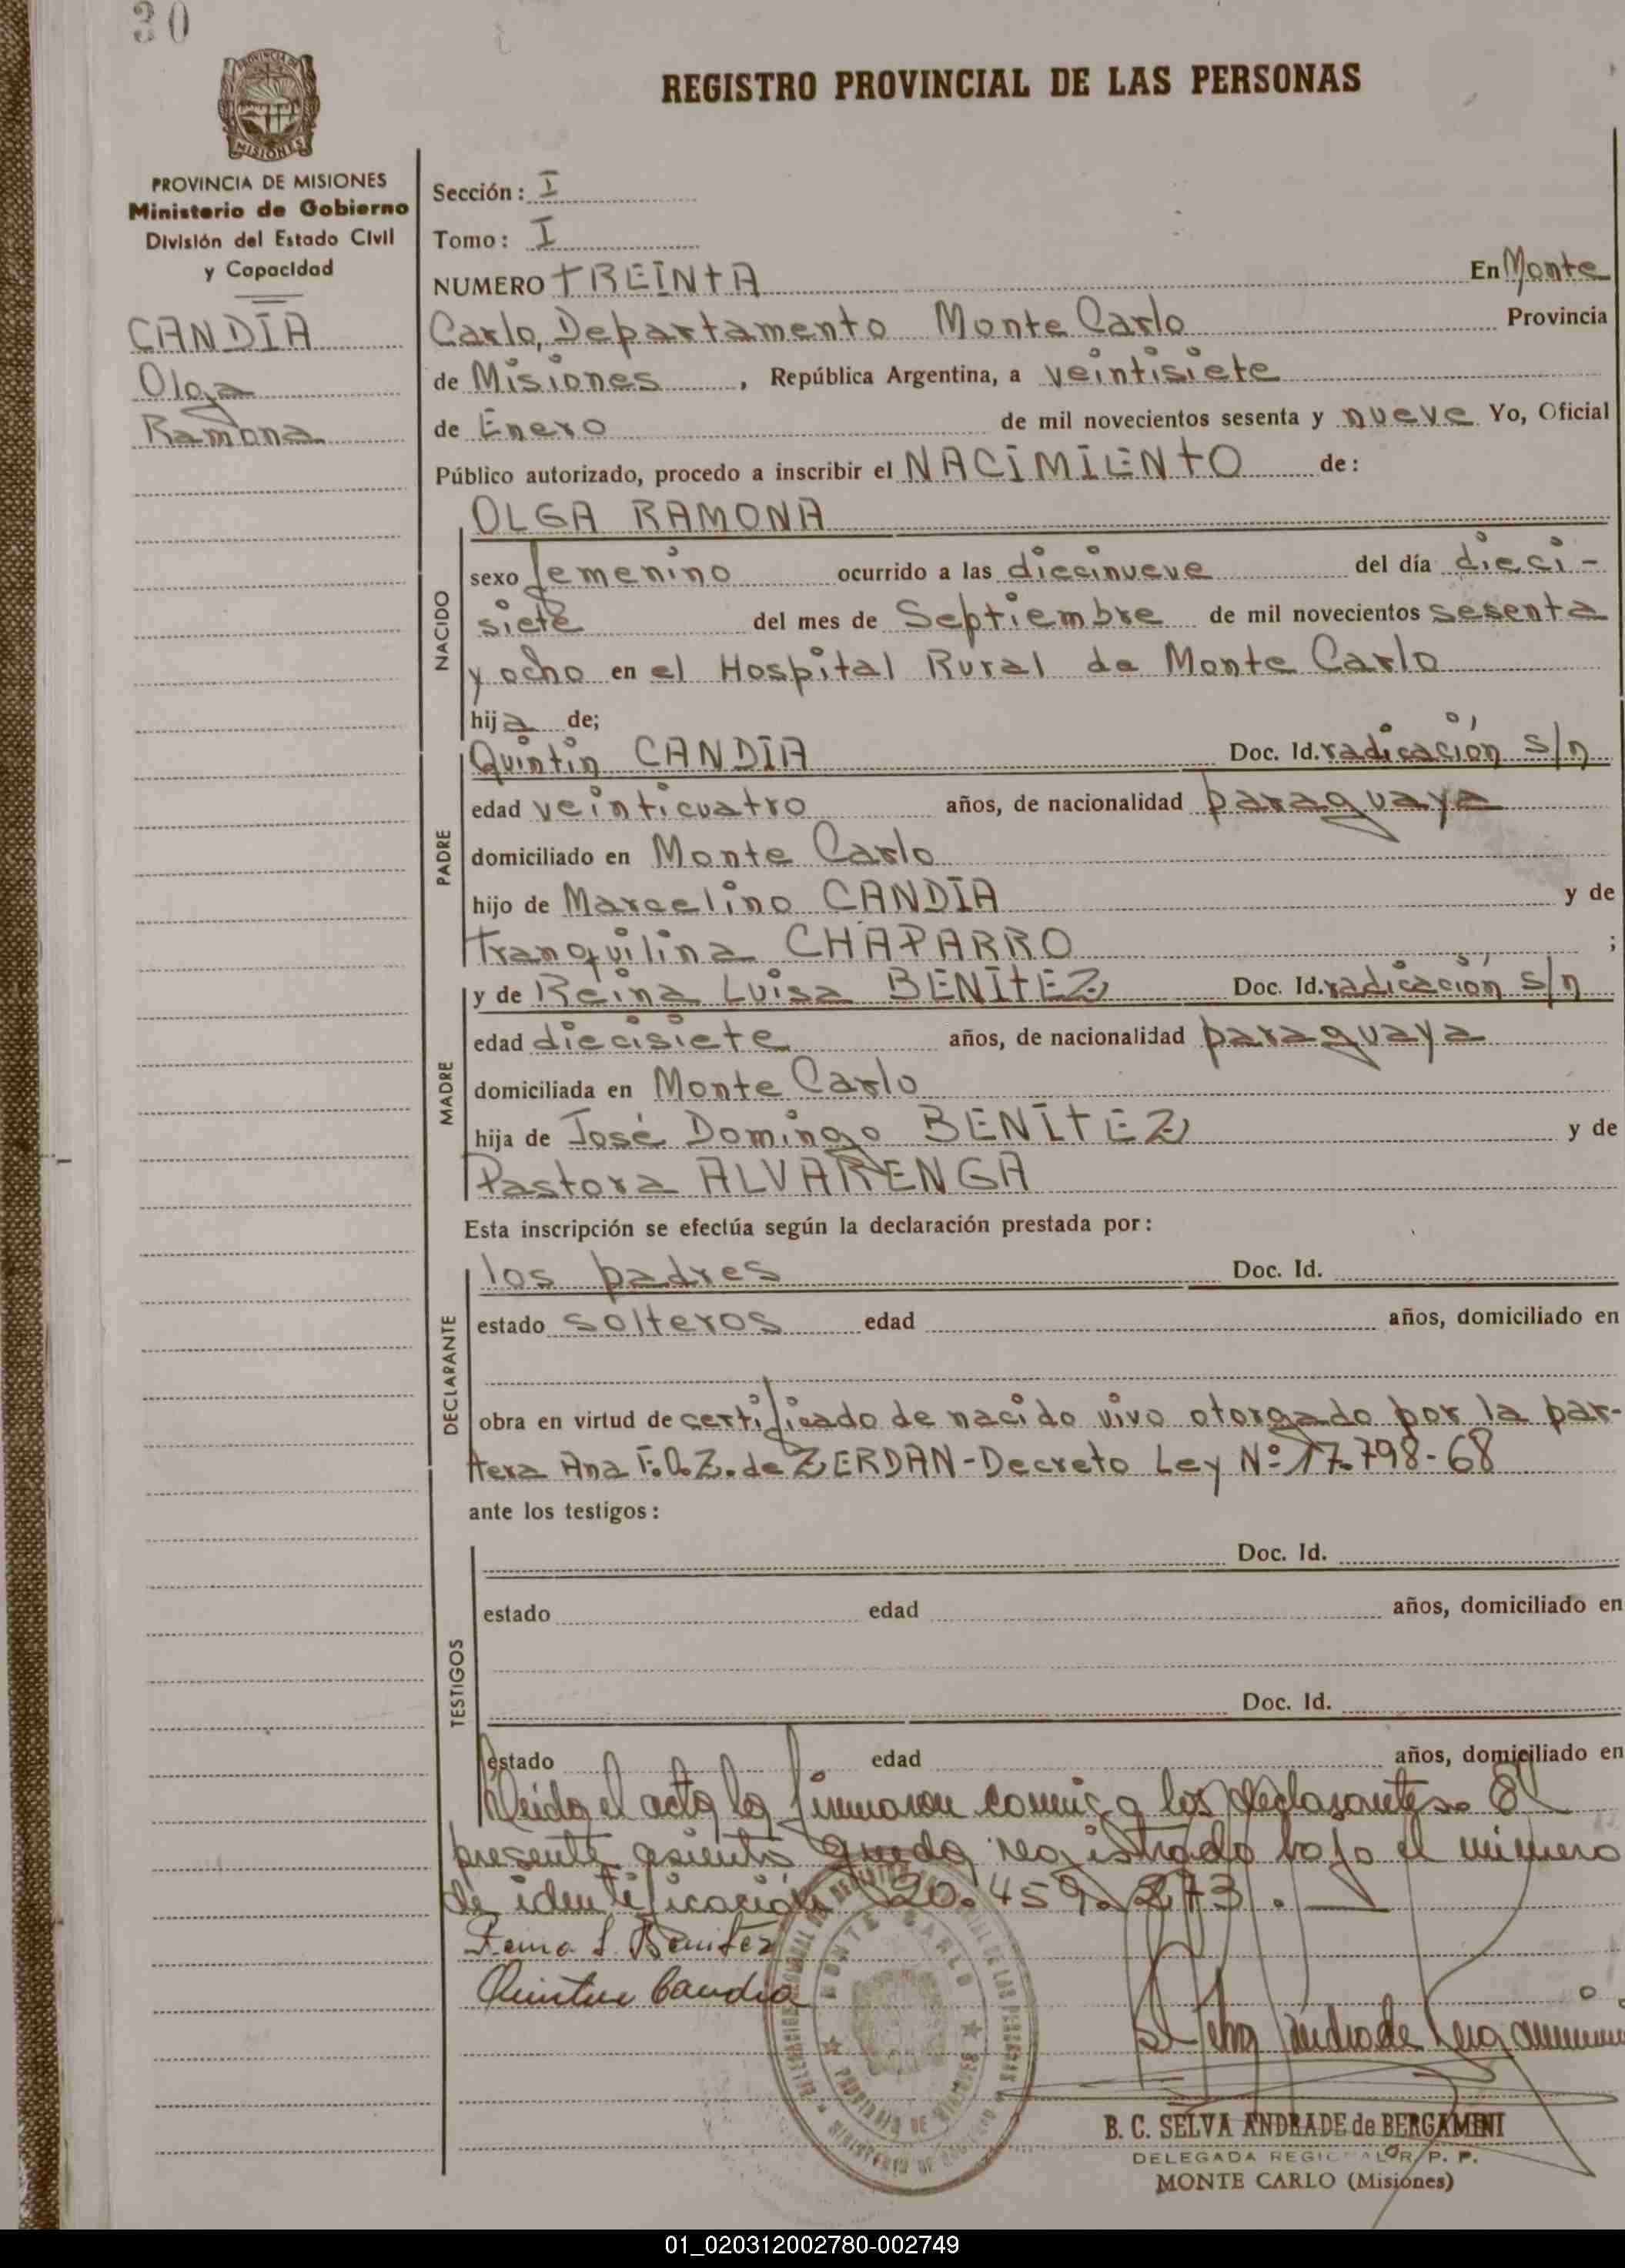 30
REGISTRO PROVINCIAL DE LAS PERSONAS
MISIONES
PROVINCIA DE MISIONES
Ministerio de Gobierno
División del Estado Civil
y Capacidad
CANDIA
Olga
Ramona
Sección: I
Tomo: I
NUMERO TREINTA En Monte
Carlo, Departamento Monte Carlo Provincia
de Misiones, República Argentina, a veintisiete
de Enero de mil novecientos sesenta y nueve Yo, Oficial
Público autorizado, procedo a inscribir el NACIMIENTO de:
NACIDO
OLGA RAMONA
sexo femenino ocurrido a las diecinueve del día dieci-
siete del mes de Septiembre de mil novecientos sesenta
y ocho en el Hospital Rural de Monte Carlo
hija de;
PADRE
Quintin CANDIA Doc. Id. radicación s/n
edad veinticuatro años, de nacionalidad paraguaya
domiciliado en Monte Carlo
hijo de Marcelino CANDIA y de
Tranquilina CHAPARRO ;
MADRE
y de Reina Luisa BENITEZ Doc. Id. radicación s/n
edad diecisiete años, de nacionalidad paraguaya
domiciliada en Monte Carlo
hija de José Domingo BENITEZ y de
Pastora ALVARENGA
Esta inscripción se efectúa según la declaración prestada por:
DECLARANTE
los padres Doc. Id.
estado solteros edad años, domiciliado en
obra en virtud de certificado de nacido vivo otorgado por la par-
tera Ana F.O.Z. de ZERDAN-Decreto Ley Nº 17.798-68
ante los testigos:
TESTIGOS
Doc. Id.
estado edad años, domiciliado en
Doc. Id.
estado edad años, domiciliado en
Leida el acta la firmaron conmigo los declarantes. El
presente asiento queda registrado bajo el número
de identificación 20.459.273.
Reina L. Benitez
Quintin Candia
MONTE CARLO
PROVINCIA DE MISIONES
MINISTERIO DE GOBIERNO
B. C. SELVA ANDRADE de BERGAMINI
DELEGADA REGIONAL R. P. P.
MONTE CARLO (Misiones)
01_020312002780-002749